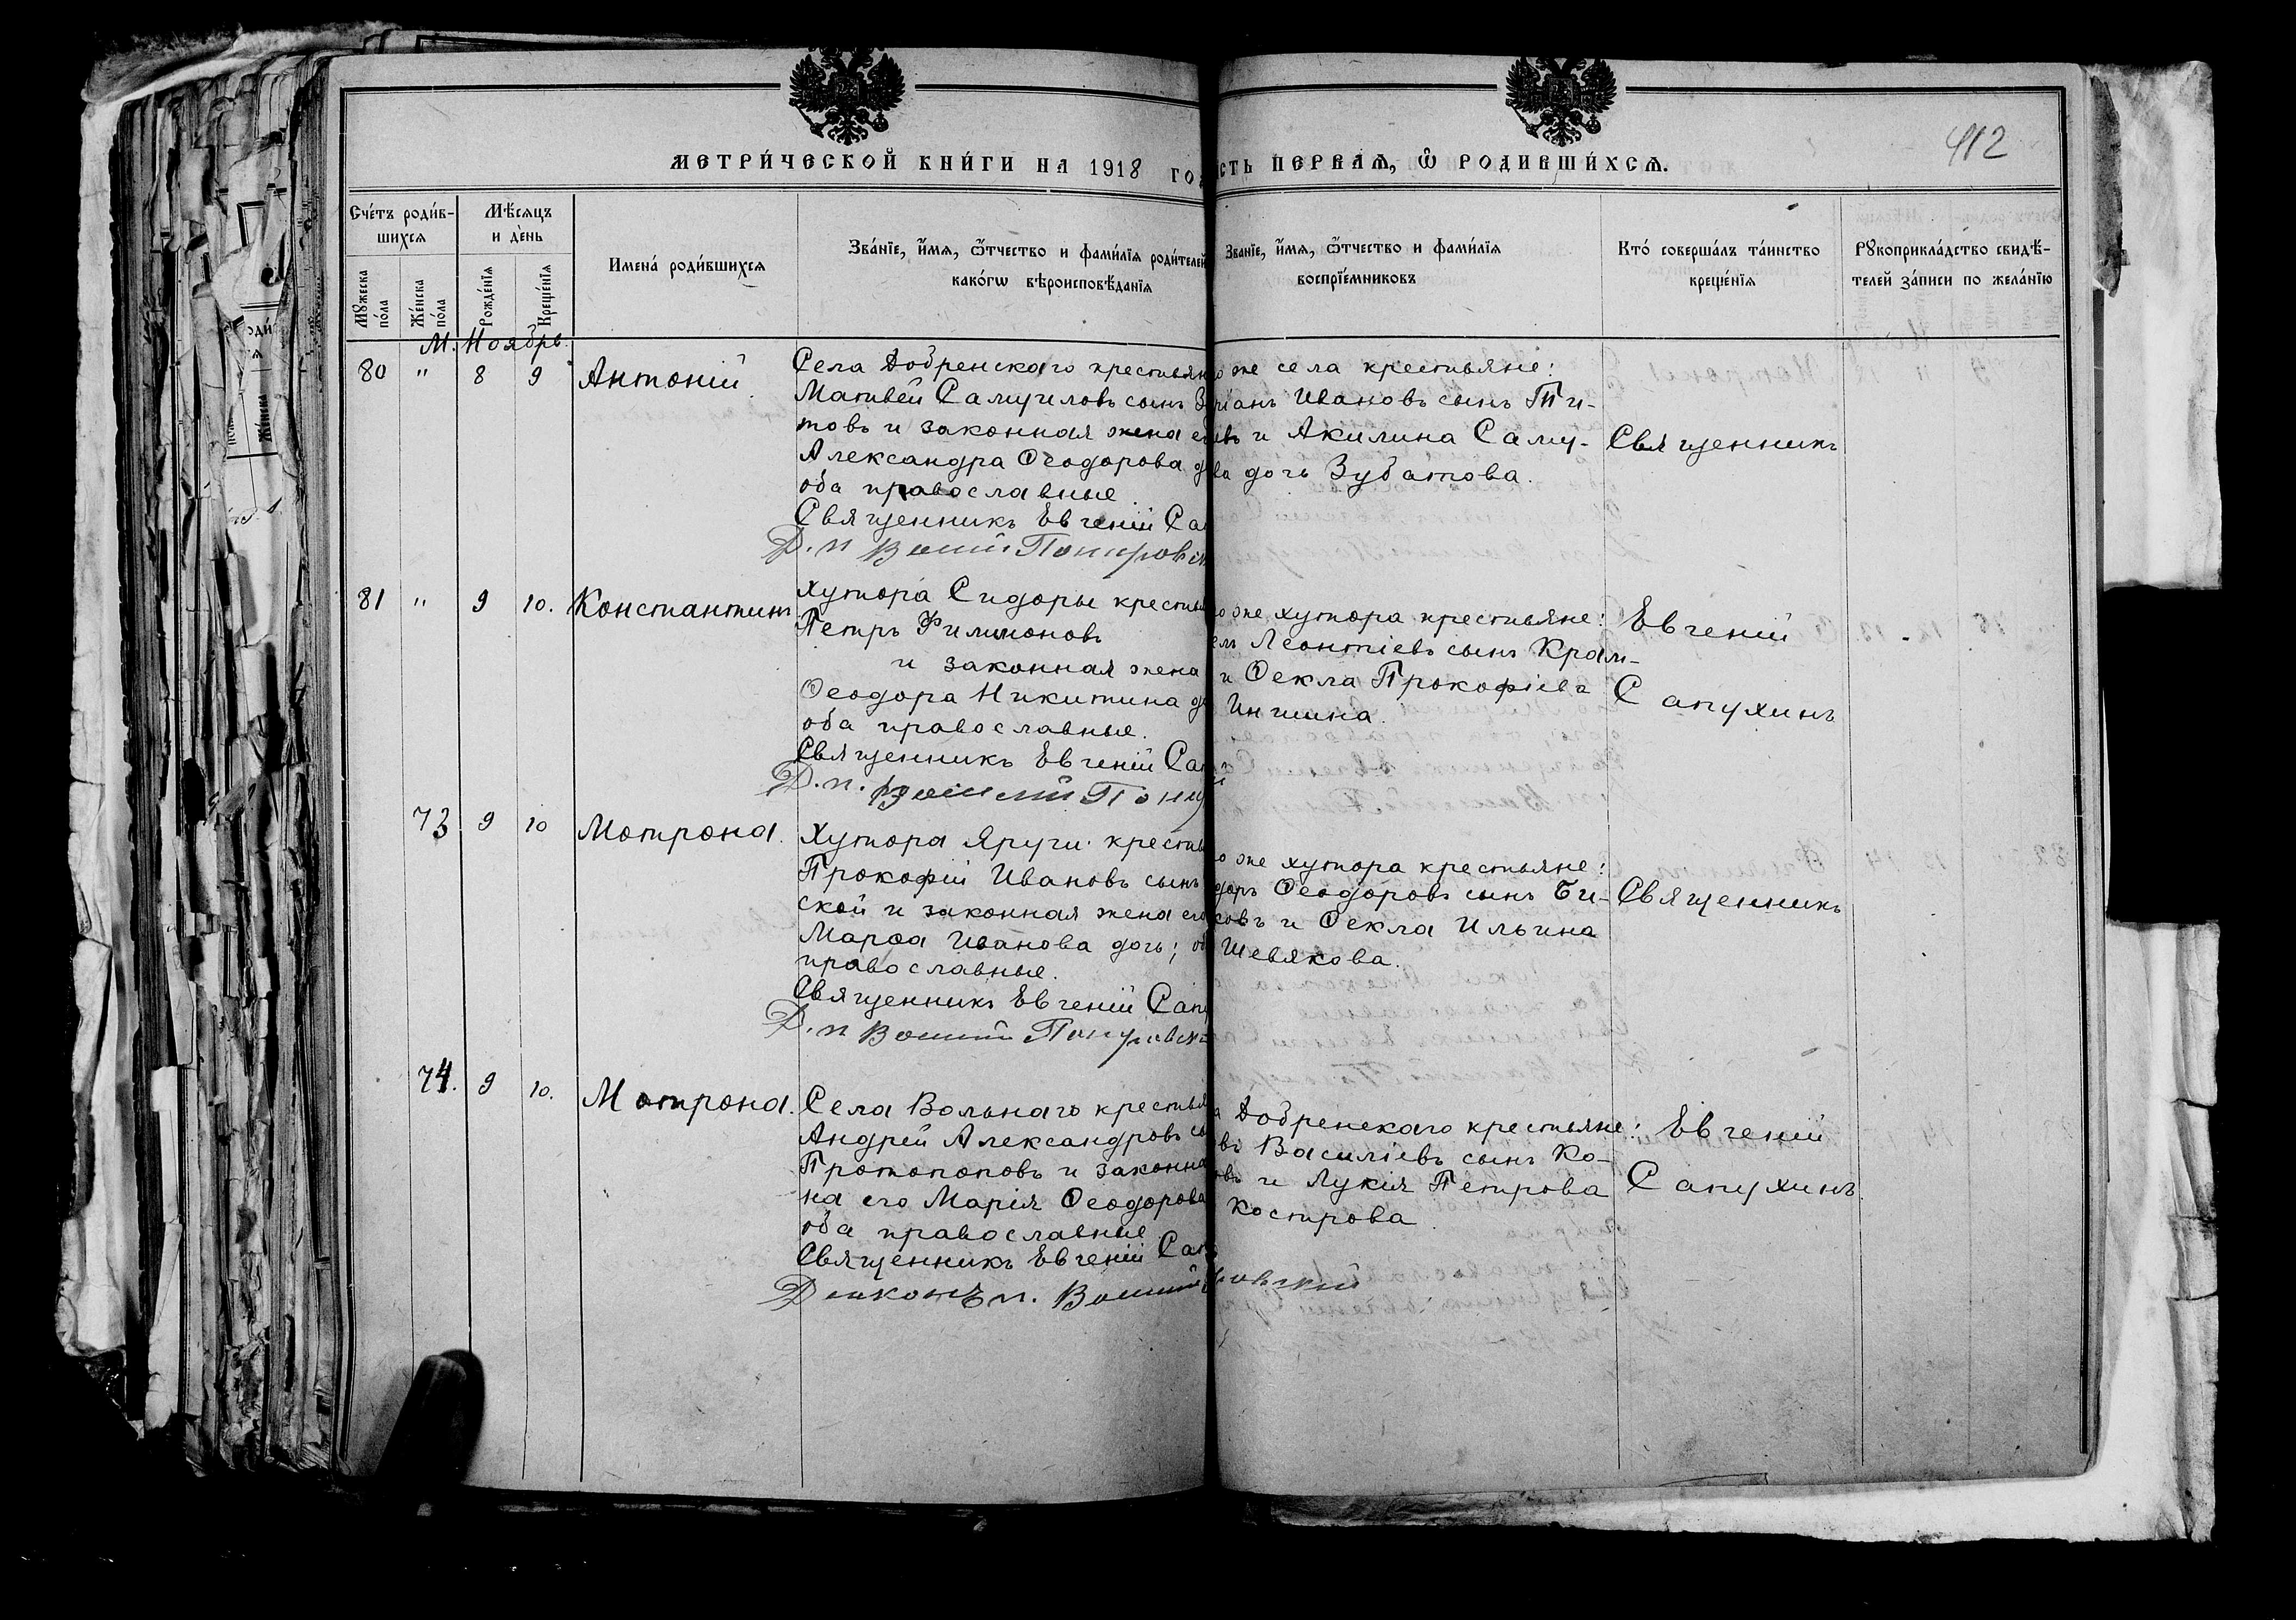 412
МЕТРИ́ЧЕСКОЙ КНИ́ГИ НА 1918 ГО
СТЬ ПЕРВАѦ, Ѿ РОДИВШИ́ХСѦ.
Сче́тъ роди́в-
шихсѧ
Мѣ́сѧцъ
и де́нь
Мꙋжеска по́ла
Же́нска по́ла
Рожде́нїѧ
Креще́нїѧ
Имена́ роди́вшихсѧ
Зва́нїе, и҆́мѧ, ѻ҆́тчество и фами́лїѧ роди́телей
како́гѡ вѣроисповѣ́данїѧ
Зва́нїе, и҆́мѧ, ѻ҆́тчество и фами́лїѧ
воспрїе́мниковъ
Кто́ соверша́лъ та́инство
креще́нїѧ
Рꙋкоприкла́дство свидѣ́-
телей за́писи по жела́нїю
М. Ноябрь.
80 " 8 9 Антоній.
Села Добренскаго крестьян
Матвей Самуиловъ сынъ З
товъ и законная жена е
Александра Ѳеодорова д
оба православные.
Священникъ Евгеній Са
Д. п
о же села крестьяне:
Ивановъ сынъ Ти-
въ и Акилина Саму-
ва дочь Зубатова.
Священникъ
81 " 9 10. Константинъ
Хутора Сидоры крестья
Петръ Филимоновъ
и законная жена
Ѳеодора Никитина д
оба православные.
Священникъ Евгеній Са
Д. п.
о же хутора крестьяне:
Леонтіевъ сынъ Крам-
и Ѳекла Прокофіева
Иншина.
Евгеній
Сапухинъ
73 9 10 Мотрона.
Хутора Яруги крестья
Прокофій Ивановъ сынъ
ской и законная жена его
Марѳа Иванова дочь; об
православные.
Священникъ Евгеній Сапу
Д. п
о же хутора крестьяне:
доръ Ѳеодоровъ сынъ Би-
совъ и Ѳекла Ильина
Шевякова.
Священникъ
74. 9 10. Мотрона.
Села Вольнаго крестья
Андрей Александровъ с
Протопоповъ и законна
на его Марія Ѳеодорова
оба православные
Священникъ Евгеній Сап
Діаконъ п.
Добренскаго крестьяне:
Василіевъ сынъ Ко-
овъ и Лукія Петрова
Кострова.
Евгеній
Сапухинъ.